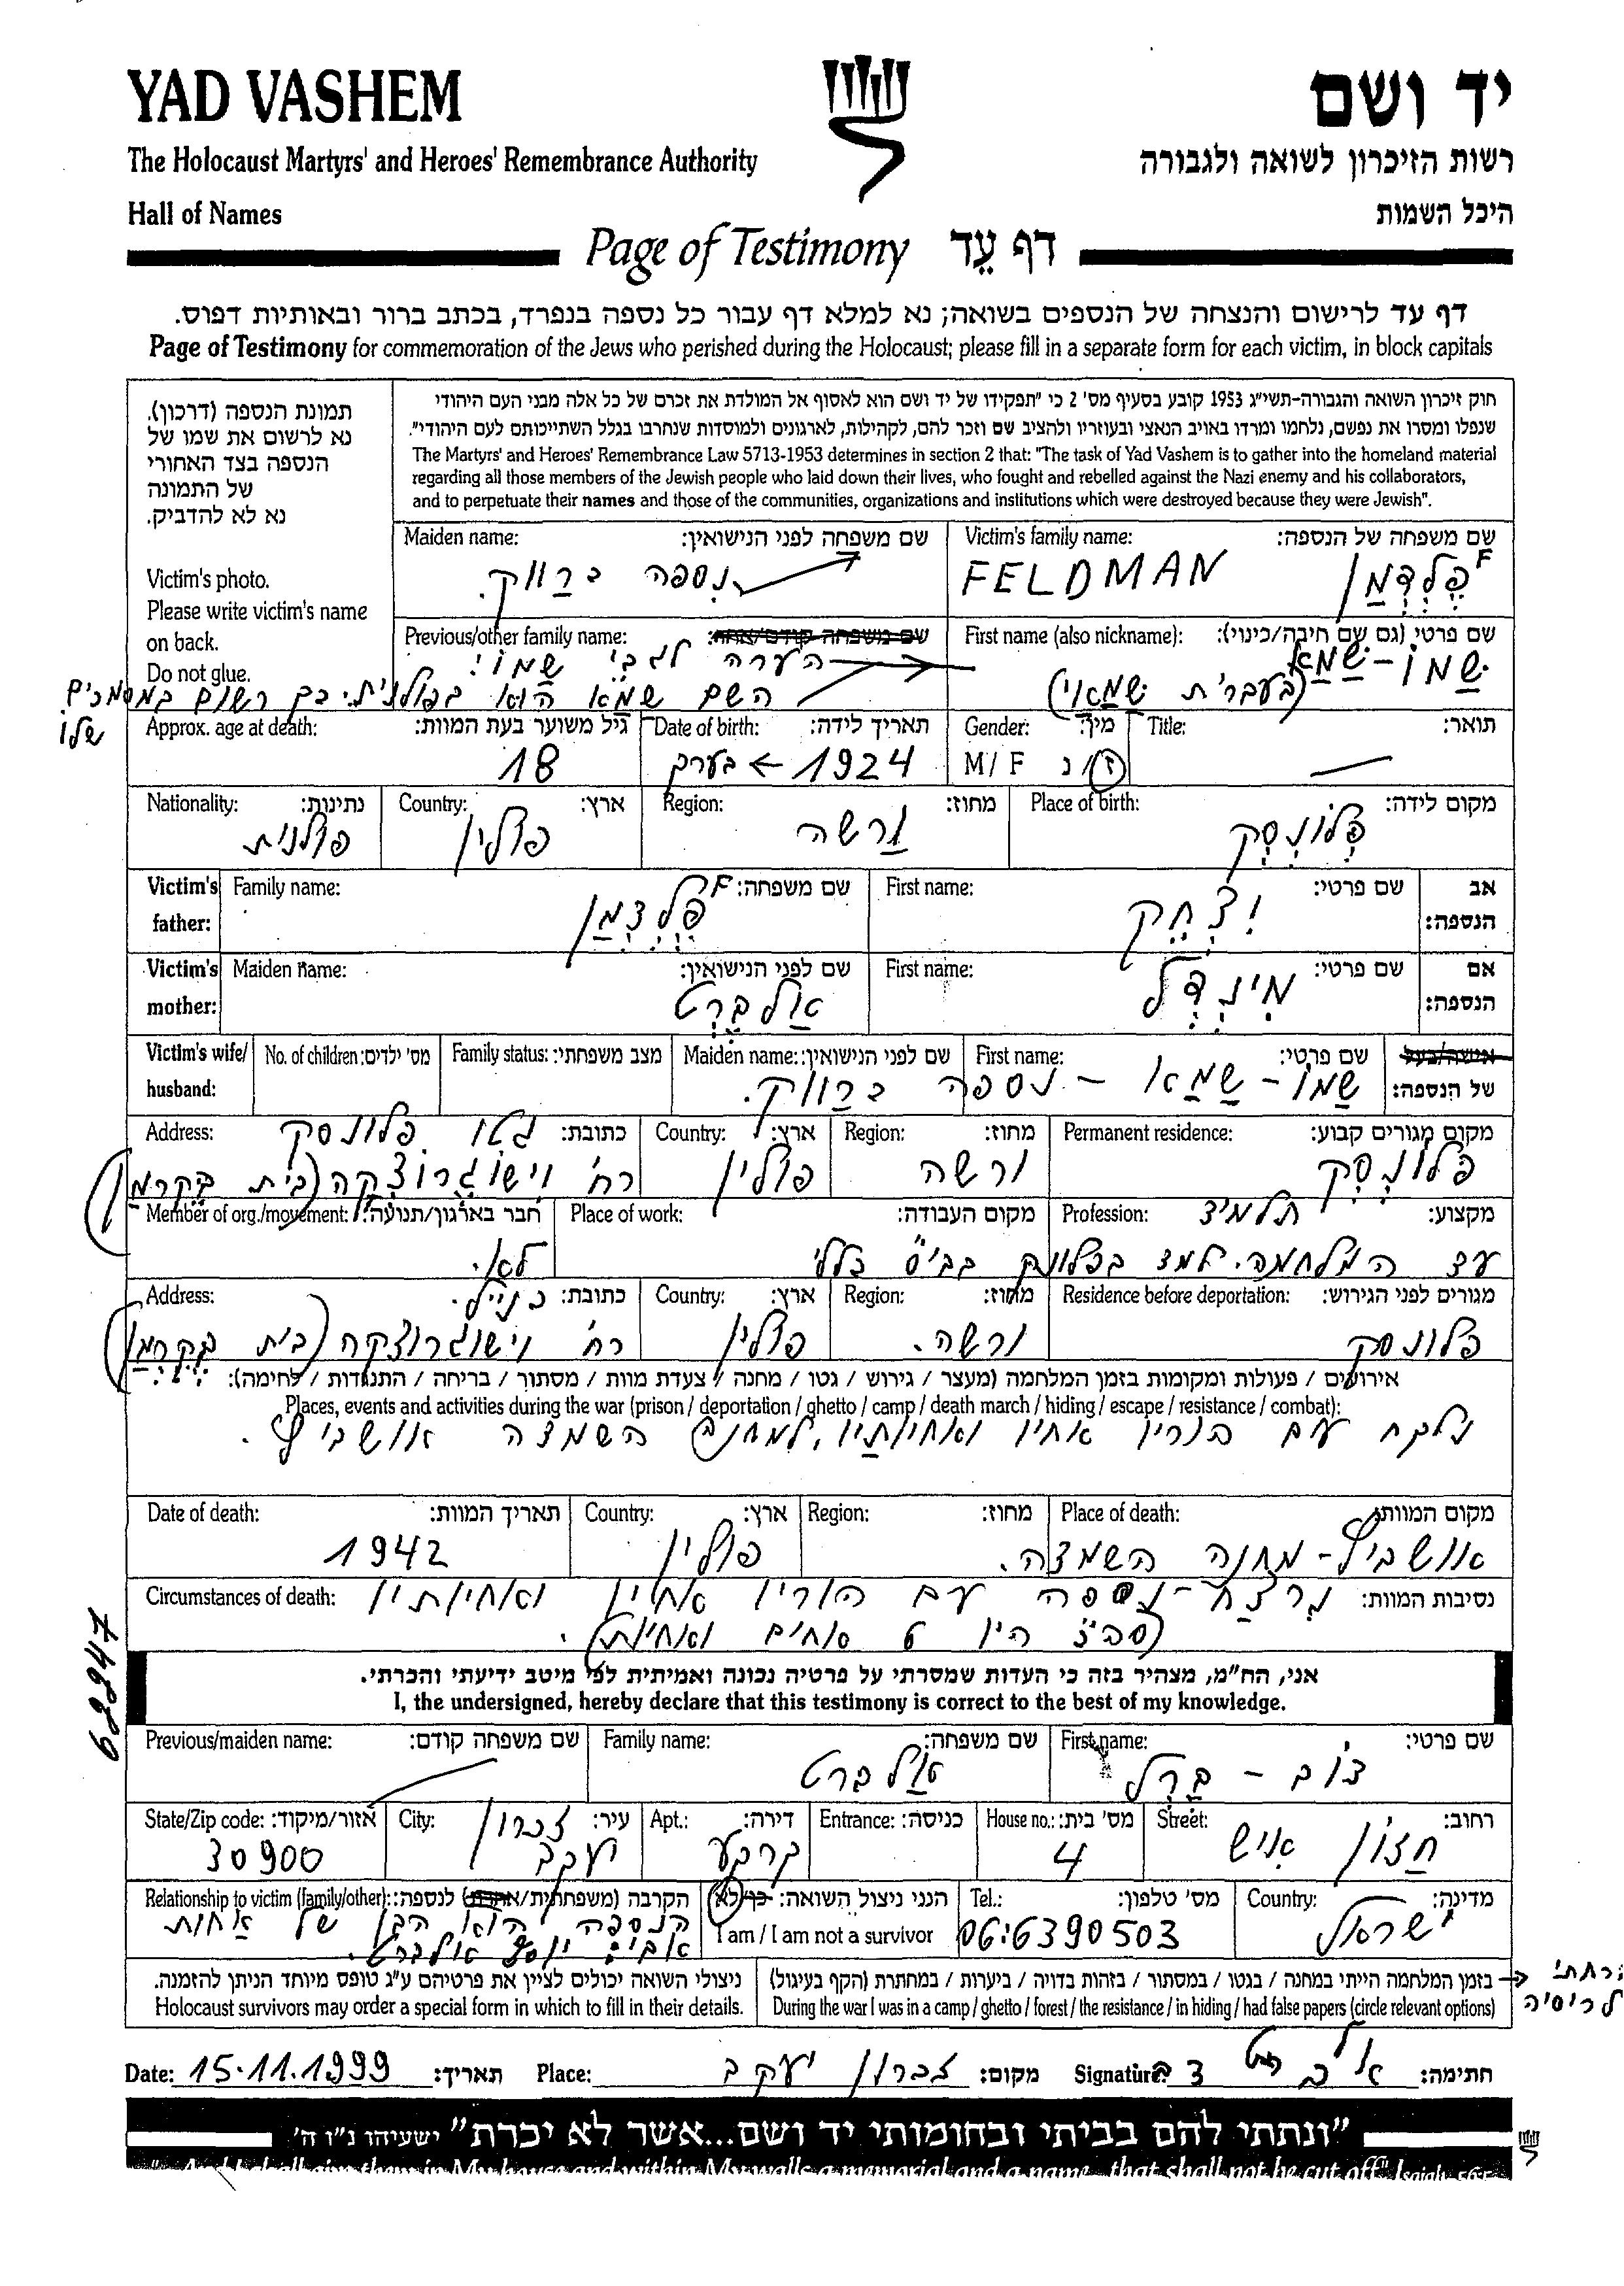 YAD VASHEM
יד ושם
The Holocaust Martyrs' and Heroes' Remembrance Authority
רשות הזיכרון לשואה ולגבורה
Hall of Names
היכל השמות
Page of Testimony דף עֵד
דף עד לרישום והנצחה של הנספים בשואה; נא למלא דף עבור כל נספה בנפרד, בכתב ברור ובאותיות דפוס.
Page of Testimony for commemoration of the Jews who perished during the Holocaust; please fill in a separate form for each victim, in block capitals
תמונת הנספה (דרכון).
נא לרשום את שמו של
הנספה בצד האחורי
של התמונה
נא לא להדביק.
Victim's photo.
Please write victim's name
on back.
Do not glue.
חוק זיכרון השואה והגבורה-תשי"ג 1953 קובע בסעיף מס' 2 כי "תפקידו של יד ושם הוא לאסוף אל המולדת את זכרם של כל אלה מבני העם היהודי
שנפלו ומסרו את נפשם, נלחמו ומרדו באויב הנאצי ובעוזריו ולהציב שם וזכר להם, לקהילות, לארגונים ולמוסדות שנחרבו בגלל השתייכותם לעם היהודי".
The Martyrs' and Heroes' Remembrance Law 5713-1953 determines in section 2 that: "The task of Yad Vashem is to gather into the homeland material
regarding all those members of the Jewish people who laid down their lives, who fought and rebelled against the Nazi enemy and his collaborators,
and to perpetuate their names and those of the communities, organizations and institutions which were destroyed because they were Jewish".
שם משפחה של הנספה: Victim's family name:
פלדמן F FELDMAN
שם משפחה לפני הנישואין: Maiden name:
נספה כרווק.
שם פרטי (גם שם חיבה/כינוי): First name (also nickname):
שמו - שמא
(בעברית שמאי)
שם משפחה קודם/אחר: Previous/other family name:
הערה לגבי שמו:
השם שמא הוא בפולנית. כך רשום במסמכים
שלו
תואר: Title:
מין: Gender:
ז/נ M / F
תאריך לידה: Date of birth:
1924 ← בערך
גיל משוער בעת המוות: Approx. age at death:
18
מקום לידה: Place of birth:
פלונסק
מחוז: Region:
ורשה
ארץ: Country:
פולין
נתינות: Nationality:
פולנית
אב הנספה: Victim's father:
שם פרטי: First name:
יצחק
שם משפחה: Family name:
פלדמן F
אם הנספה: Victim's mother:
שם פרטי: First name:
מינדל
שם לפני הנישואין: Maiden name:
אלברט
אישה/בעל של הנספה: Victim's wife/ husband:
שם פרטי: First name:
שם לפני הנישואין: Maiden name:
מצב משפחתי: Family status:
מס' ילדים: No. of children:
שמו - שמא - נספה כרווק.
מקום מגורים קבוע: Permanent residence:
פלונסק
מחוז: Region:
ורשה
ארץ: Country:
פולין
כתובת: Address:
גטו פלונסק
רח' וישוגרוצקה (בית בקרמן)
מקצוע: Profession:
תלמיד
מקום העבודה: Place of work:
עד המלחמה. למד בפלונסק בבי"ס כללי
חבר בארגון/תנועה: Member of org./movement:
לא.
מגורים לפני הגירוש: Residence before deportation:
פלונסק
מחוז: Region:
ורשה.
ארץ: Country:
פולין
כתובת: Address:
כנ"ל.
רח' וישוגרוצקה (בית בקרמן)
אירועים / פעולות ומקומות בזמן המלחמה (מעצר / גירוש / גטו / מחנה / צעדת מוות / מסתור / בריחה / התנגדות / לחימה):
Places, events and activities during the war (prison / deportation / ghetto / camp / death march / hiding / escape / resistance / combat):
נלקח עם הוריו אחיו ואחיותיו, למחנה השמדה אושביץ.
מקום המוות: Place of death:
אושביץ - מחנה השמדה.
מחוז: Region:
ארץ: Country:
פולין
תאריך המוות: Date of death:
1942
נסיבות המוות: Circumstances of death:
נרצח - נספה עם הוריו אחיו ואחיותיו
(סה"כ היו 6 אחים ואחיות).
62247
אני, הח"מ, מצהיר בזה כי העדות שמסרתי על פרטיה נכונה ואמיתית לפי מיטב ידיעתי והכרתי.
I, the undersigned, hereby declare that this testimony is correct to the best of my knowledge.
שם פרטי: First name:
דוב - ברל
שם משפחה: Family name:
אלברט
שם משפחה קודם: Previous/maiden name:
רחוב: Street:
חזון איש
מס' בית: House no.:
4
כניסה: Entrance:
דירה: Apt.:
קרקע
עיר: City:
זכרון
יעקב
אזור/מיקוד: State/Zip code:
30900
מדינה: Country:
ישראל
מס' טלפון: Tel.:
06:6390503
הנני ניצול השואה: כן/לא
I am / I am not a survivor
הקרבה (משפחתית/אחרת) לנספה: Relationship to victim (family/other):
הנספה הוא הבן של אחות
אבי: יוסף אלברט.
בזמן המלחמה הייתי במחנה / בגטו / במסתור / בזהות בדויה / ביערות / במחתרת (הקף בעיגול)
During the war I was in a camp / ghetto / forest / the resistance / in hiding / had false papers (circle relevant options)
ברחתי
לרוסיה
ניצולי השואה יכולים לציין את פרטיהם ע"ג טופס מיוחד הניתן להזמנה.
Holocaust survivors may order a special form in which to fill in their details.
Date: 15.11.1999 תאריך: Place: זכרון יעקב מקום: Signature: אלברט דב חתימה:
"ונתתי להם בביתי ובחומותי יד ושם...אשר לא יכרת" ישעיהו נ"ו ה'
"...And I shall give them in My house and within My walls a memorial and a name...that shall not be cut off" Isaiah 56:5